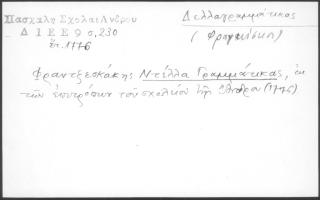 Πασχάλη Σχολαι Άνδρου
Δ Ι Ε Ε 9 σ, 230
ἔτ. 1776
Δελλαγραμμάτικας
(Φραγκίσκος)
Φραντζεσκάκης Ντέλλα Γραμμάτικας, ἐκ
τῶν ἐπιτρόπων τοῦ σχολείου τῆς Ἄνδρου (1776)